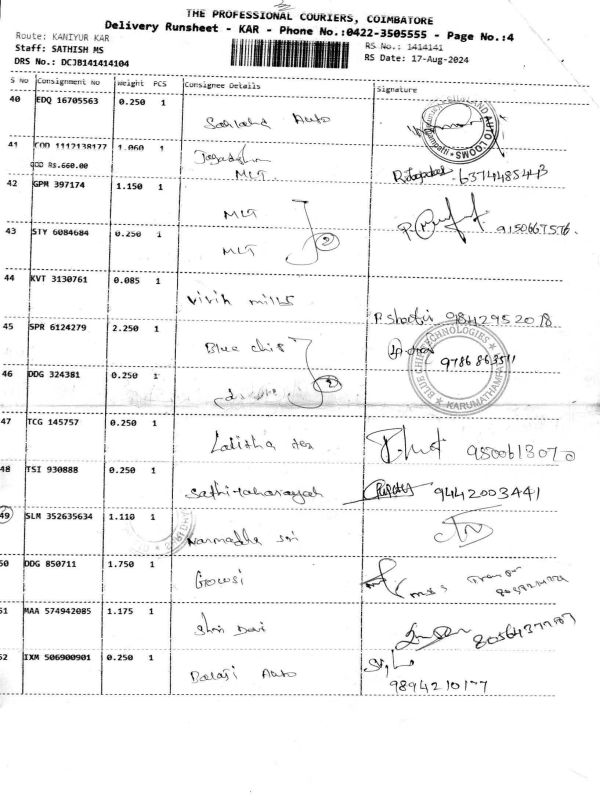 THE PROFESSIONAL COURIERS, COIMBATORE
Delivery Runsheet - KAR - Phone No.:0422-3505555 - Page No.:4
Route: KANIYUR KAR
RS No.: 1414141
Staff: SATHISH MS
RS Date: 17-Aug-2024
DRS No.: DCJB141414104
S No Consignment No Weight PCS Consignee Details Signature
40 EDQ 16705563 0.250 1 Auto
41 COD 1112138177 1.060 1
COD Rs.660.00 MLT 6374485443
42 GPM 397174 1.150 1 MLT
43 STY 6084684 0.250 1 MLT 2 9150667576.
44 KVT 3130761 0.085 1 vivin mills P. 9842952018
45 SPR 6124279 2.250 1 Blue chip 9786863511
BLUE CHIP TECHNOLOGIES
46 DDG 324381 0.250 1 2
47 TCG 145757 0.250 1 Lalitha 9500613070
48 TSI 930888 0.250 1 9442003441
49 SLM 352635634 1.110 1 Narmadha sri
50 DDG 850711 1.750 1 Gowsi
51 MAA 574942085 1.175 1 Shri Devi
52 IXM 506900901 0.250 1 Balaji Auto
9894210177